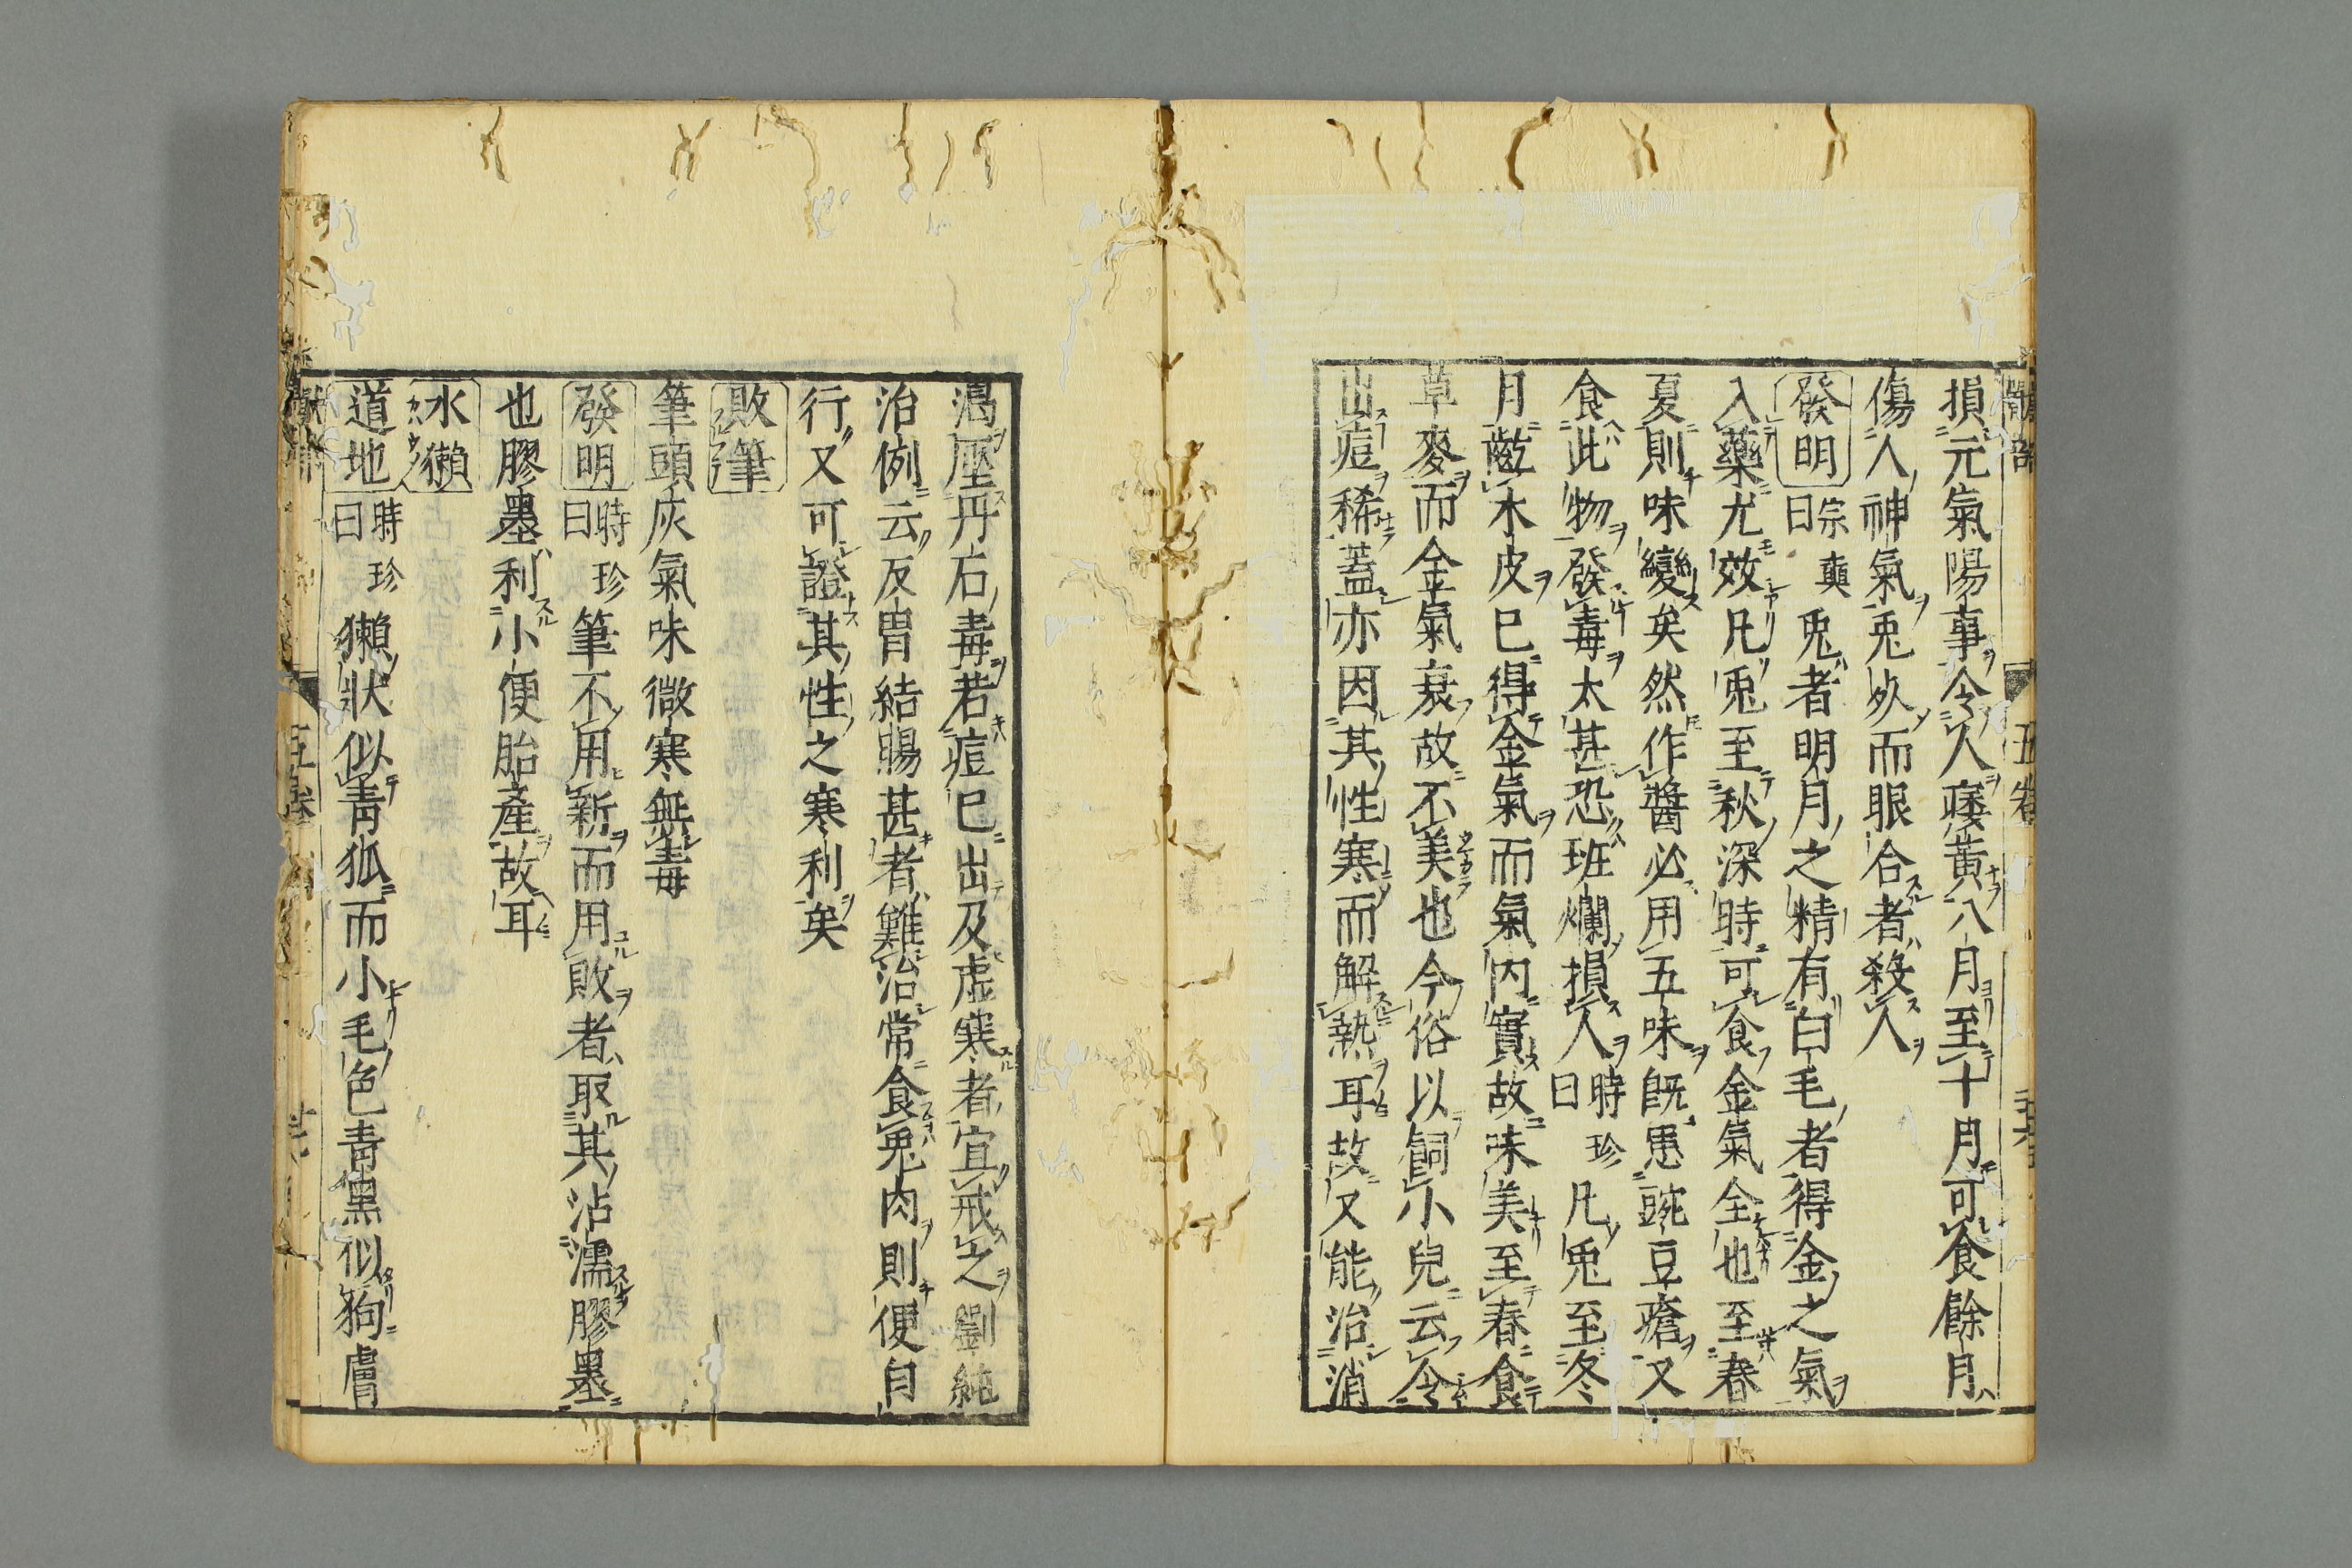 損元氣陽事令人痿黃八月至十月可食餘月
傷人神氣兎死而眼合者殺人
發明 宗奭曰 兎者明月之精有白毛者得金之氣
入藥尤效凡兎至秋深時可食金氣全也至春
夏則味變矣然作醬必用五味既患豌豆瘡又
食此物發毒太甚恐斑爛損人 時珍曰 凡兎至冬
月齕木皮已得金氣而氣內實故味美至春食
草麥而金氣衰故不美也今俗以飼小兒云令
出痘稀蓋亦因其性寒而解熱耳故又能治消
渴壓丹石毒若痘已出及虛寒者宜戒之劉純
治例云反胃結腸甚者難治常食兎肉則便自
行又可證其性之寒利矣
敗筆
筆頭灰氣味微寒無毒
發明 時珍曰 筆不用新而用敗者取其沾濡膠墨
也膠墨利小便胎產故耳
水獺
道地 時珍曰 獺狀似青狐而小毛色青黑似狗膚